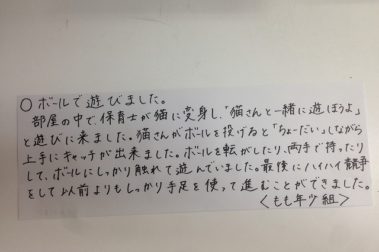 ○ボールで遊びました。
部屋の中で、保育士が猫に変身し、「猫さんと一緒に遊ぼうよ」
と遊びに来ました。猫さんがボールを投げると「ちょーだい」しながら
上手にキャッチが出来ました。ボールを転がしたり、両手で持ったり
して、ボールにしっかり触れて遊んでいました。最後にハイハイ競争
をして以前よりもしっかり手足を使って進むことができました。
＜もも年少組＞